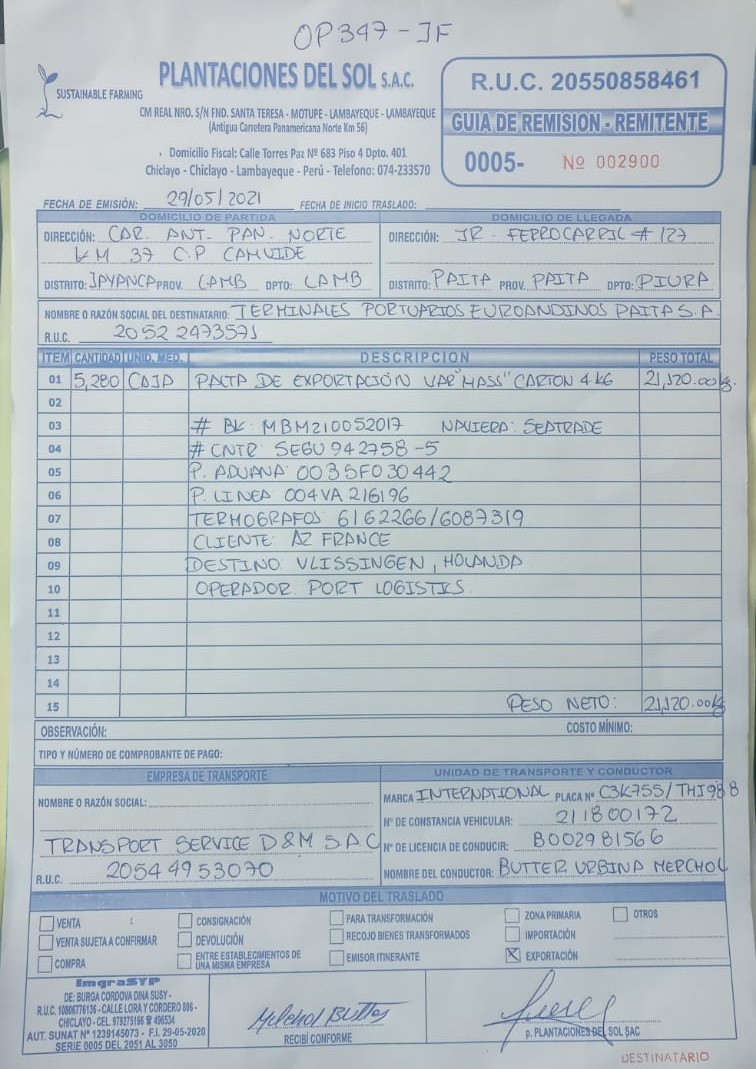 OP347-JF
SUSTAINABLE FARMING
PLANTACIONES DEL SOL S.A.C.
CM REAL NRO. S/N FND. SANTA TERESA - MOTUPE - LAMBAYEQUE - LAMBAYEQUE
(Antigua Carretera Panamericana Norte Km 56)
Domicilio Fiscal: Calle Torres Paz Nº 683 Piso 4 Dpto. 401
Chiclayo - Chiclayo - Lambayeque - Perú - Telefono: 074-233570
R.U.C. 20550858461
GUIA DE REMISION - REMITENTE
0005- Nº 002900
FECHA DE EMISIÓN: 29/05/2021 FECHA DE INICIO TRASLADO:
DOMICILIO DE PARTIDA DOMICILIO DE LLEGADA
DIRECCIÓN: CAR. ANT. PAN. NORTE DIRECCIÓN: JR. FERROCARRIL # 127
KM 37 C.P CAHUIDE
DISTRITO: JAYANCA PROV. LAMB DPTO: LAMB DISTRITO: PAITA PROV. PAITA DPTO: PIURA
NOMBRE O RAZÓN SOCIAL DEL DESTINATARIO: TERMINALES PORTUARIOS EUROANDINOS PAITA S.A.
R.U.C. 20522473571
ITEM CANTIDAD UNID. MED. DESCRIPCION PESO TOTAL
01 5,280 CAJA PALTA DE EXPORTACIÓN VAR "HASS" CARTON 4 KG 21,120.00 kg.
02
03 # BK: MBM210052017 NAVIERA: SEATRADE
04 # CNTR: SEGU 942758-5
05 P. ADUANA: 0035F030442
06 P. LINEA 004VA 216196
07 TERMOGRAFOS 6162266/6087319
08 CLIENTE: AZ FRANCE
09 DESTINO: VLISSINGEN, HOLANDA
10 OPERADOR: PORT LOGISTICS.
11
12
13
14
15 PESO NETO: 21,120.00 kg
OBSERVACIÓN: COSTO MÍNIMO:
TIPO Y NÚMERO DE COMPROBANTE DE PAGO:
EMPRESA DE TRANSPORTE UNIDAD DE TRANSPORTE Y CONDUCTOR
NOMBRE O RAZÓN SOCIAL: MARCA INTERNATIONAL PLACA Nº C3K755/THI988
Nº DE CONSTANCIA VEHICULAR: 211800172
TRANSPORT SERVICE D&M S.A.C Nº DE LICENCIA DE CONDUCIR: B002981566
R.U.C. 20544953070 NOMBRE DEL CONDUCTOR: BUTTER URBINA MERCHOL
MOTIVO DEL TRASLADO
VENTA CONSIGNACIÓN PARA TRANSFORMACIÓN ZONA PRIMARIA OTROS
VENTA SUJETA A CONFIRMAR DEVOLUCIÓN RECOJO BIENES TRANSFORMADOS IMPORTACIÓN
COMPRA ENTRE ESTABLECIMIENTOS DE UNA MISMA EMPRESA EMISOR ITINERANTE X EXPORTACIÓN
ImgraSYP
DE: BURGA CORDOVA DINA SUSY -
R.U.C. 10806776136 - CALLE LORA Y CORDERO 806 -
CHICLAYO - CEL. 979275196 496534
AUT. SUNAT Nº 1239145073 - F.I. 29-05-2020
SERIE 0005 DEL 2051 AL 3050
Melchol Butter
RECIBÍ CONFORME
p. PLANTACIONES DEL SOL SAC
DESTINATARIO